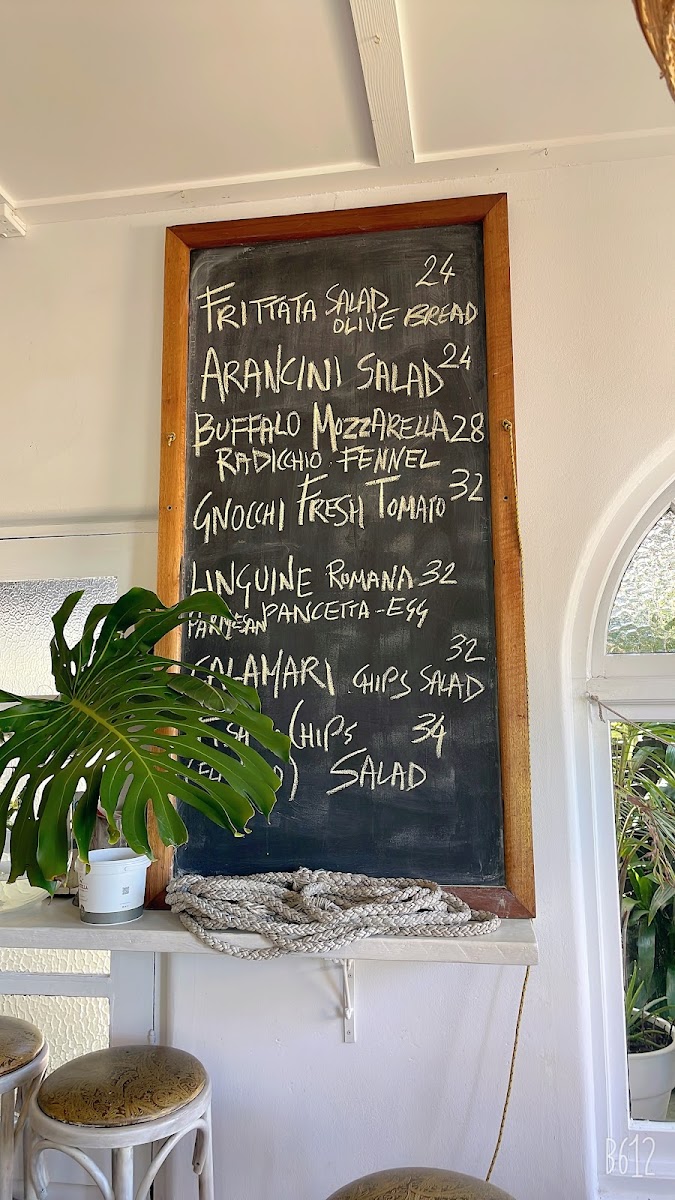 24
FRITTATA SALAD
OLIVE BREAD
ARANCINI SALAD 24
BUFFALO MOZZARELLA 28
RADICCHIO FENNEL
GNOCCHI FRESH TOMATO 32
LINGUINE ROMANA 32
PARMESAN PANCETTA - EGG
32
CALAMARI CHIPS SALAD
CHIPS 34
SALAD
B612